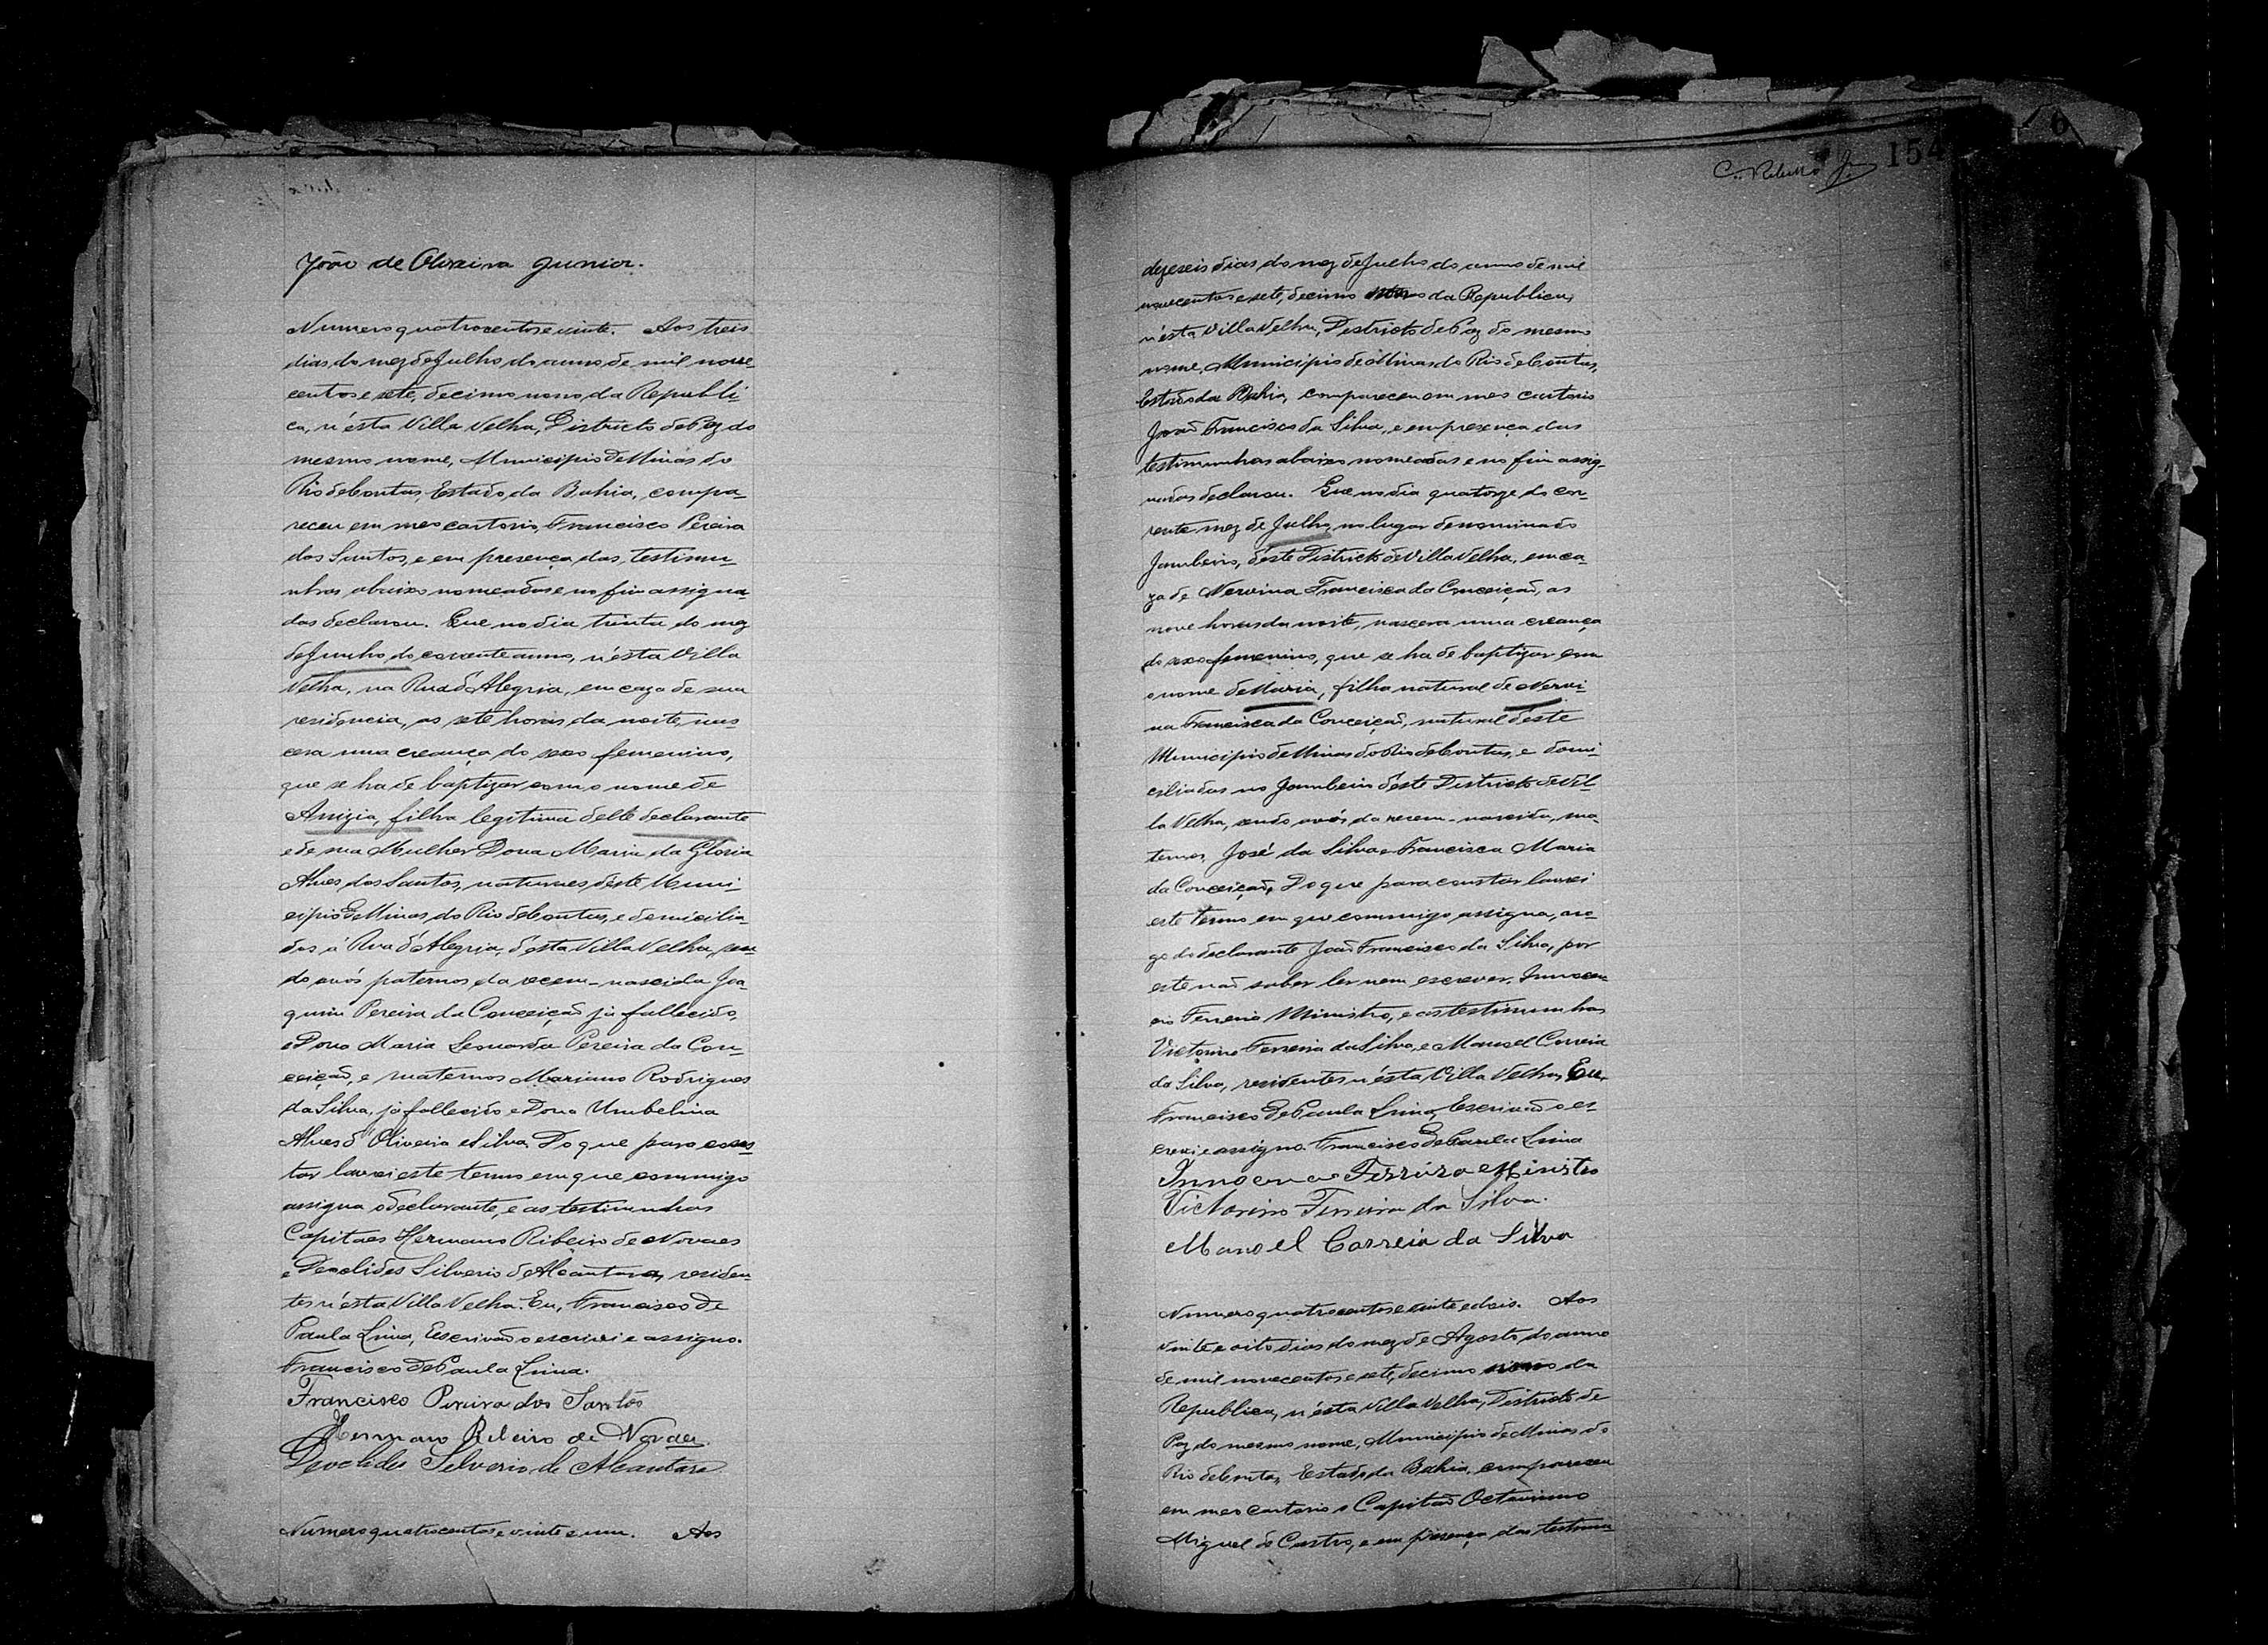 João de Oliveira Junior.
Numero quatrocentos e vinte. Aos treis
dias do mez de Julho do anno de mil nove-
centos e sete, decimo nono da Republi-
ca, n'ésta Villa Velha, Districto de Paz do
mesmo nome, Municipio de Minas do
Rio de Contas, Estado da Bahia, compa-
receu em meo cartorio, Francisco Pereira
dos Santos, e em presença das testimu-
nhas abaixo nomeadas e no fim assigna-
das declarou. Que no dia trinta do mez
de Junho do corrente anno, n'ésta Villa
Velha, na Rua d'Alegria, em caza de sua
residencia, as sete horas da noite, nas
cera uma creança do sexo femenino,
que se ha de baptizar com o nome de
Anizia, filha legitima delle declarante
e de sua Mulher Dona Maria da Gloria
Alves dos Santos, naturaes d'éste Muni-
cipio de Minas do Rio de Contas, e domicilia-
dos á Rua d'Alegria, d'ésta Villa Velha, sen-
do avós paternos da recem-nascida Joa-
quim Pereira da Conceição já fallecido,
e Dona Maria Leonarda Pereira da Con-
ceição, e maternos Mariano Rodrigues
da Silva, já fallecido e Dona Umbelina
Alves d'Oliveira e Silva. Do que para cons-
tar lavrei este termo em que commigo
assigna o declarante, e as testimunhas
Capitães Hermano Ribeiro de Novaes
e Deoclides Silverio de Alcantara, residen-
tes n'ésta Villa Velha. Eu, Francisco de
Paula Lima, Escrivão o escrivi e assigno.
Francisco de Paula Lima.
Francisco Pereira dos Santos
Hermano Ribeiro de Novaes
Deoclides Silverio de Alcantara
Numero quatrocentos e vinte e um. Aos
154
dezeseis dias do mez de Julho do anno de mil
novecentos e sete, decimo nono da Republica,
n'ésta Villa Velha, Districto de Paz do mesmo
nome, Municipio de Minas do Rio de Contas,
Estado da Bahia, compareceu em meo cartorio
João Francisco da Silva, e em presença das
testimunhas abaixo nomeadas e no fim assig-
nadas declarou. Que no dia quatorze do cor-
rente mez de Julho, no lugar denominado
Jambeiro, d'éste Districto de Villa Velha, em ca-
za de Nervina Francisca da Conceição, as
nove horas da noite, nascera uma creança
do sexo femenino, que se ha de baptizar com
o nome de Maria, filha natural de Nervi-
na Francisca da Conceição, natural d'éste
Municipio de Minas do Rio de Contas, e domi-
ciliadas no Jambeiro d'éste Districto de Vil-
la Velha, sendo avós da recem-nascida, ma-
ternos, José da Silva e Francisca Maria
da Conceição. Do que para constar lavrei
este termo em que commigo assigna, aro-
go do declarante João Francisco da Silva, por
este não saber ler nem escrever, Innocen-
cio Ferreira Ministro, e as testimunhas
Victorino Ferreira da Silva, e Manoel Correia
da Silva, residentes n'ésta Villa Velha. Eu,
Francisco de Paula Lima, Escrivão o es-
crevi e assigno. Francisco de Paula Lima
Innocencio Ferreira Ministro
Victorino Ferreira da Silva.
Manoel Correia da Silva
Numero quatrocentos e vinte e dois. Aos
vinte e oito dias do mez de Agosto do anno
de mil novecentos e sete, decimo nono da
Republica, n'ésta Villa Velha, Districto de
Paz do mesmo nome, Municipio de Minas do
Rio de Contas, Estado da Bahia, compareceu
em meo cartorio o Capitão Octaviano
Miguel de Castro, e em presença das testimu